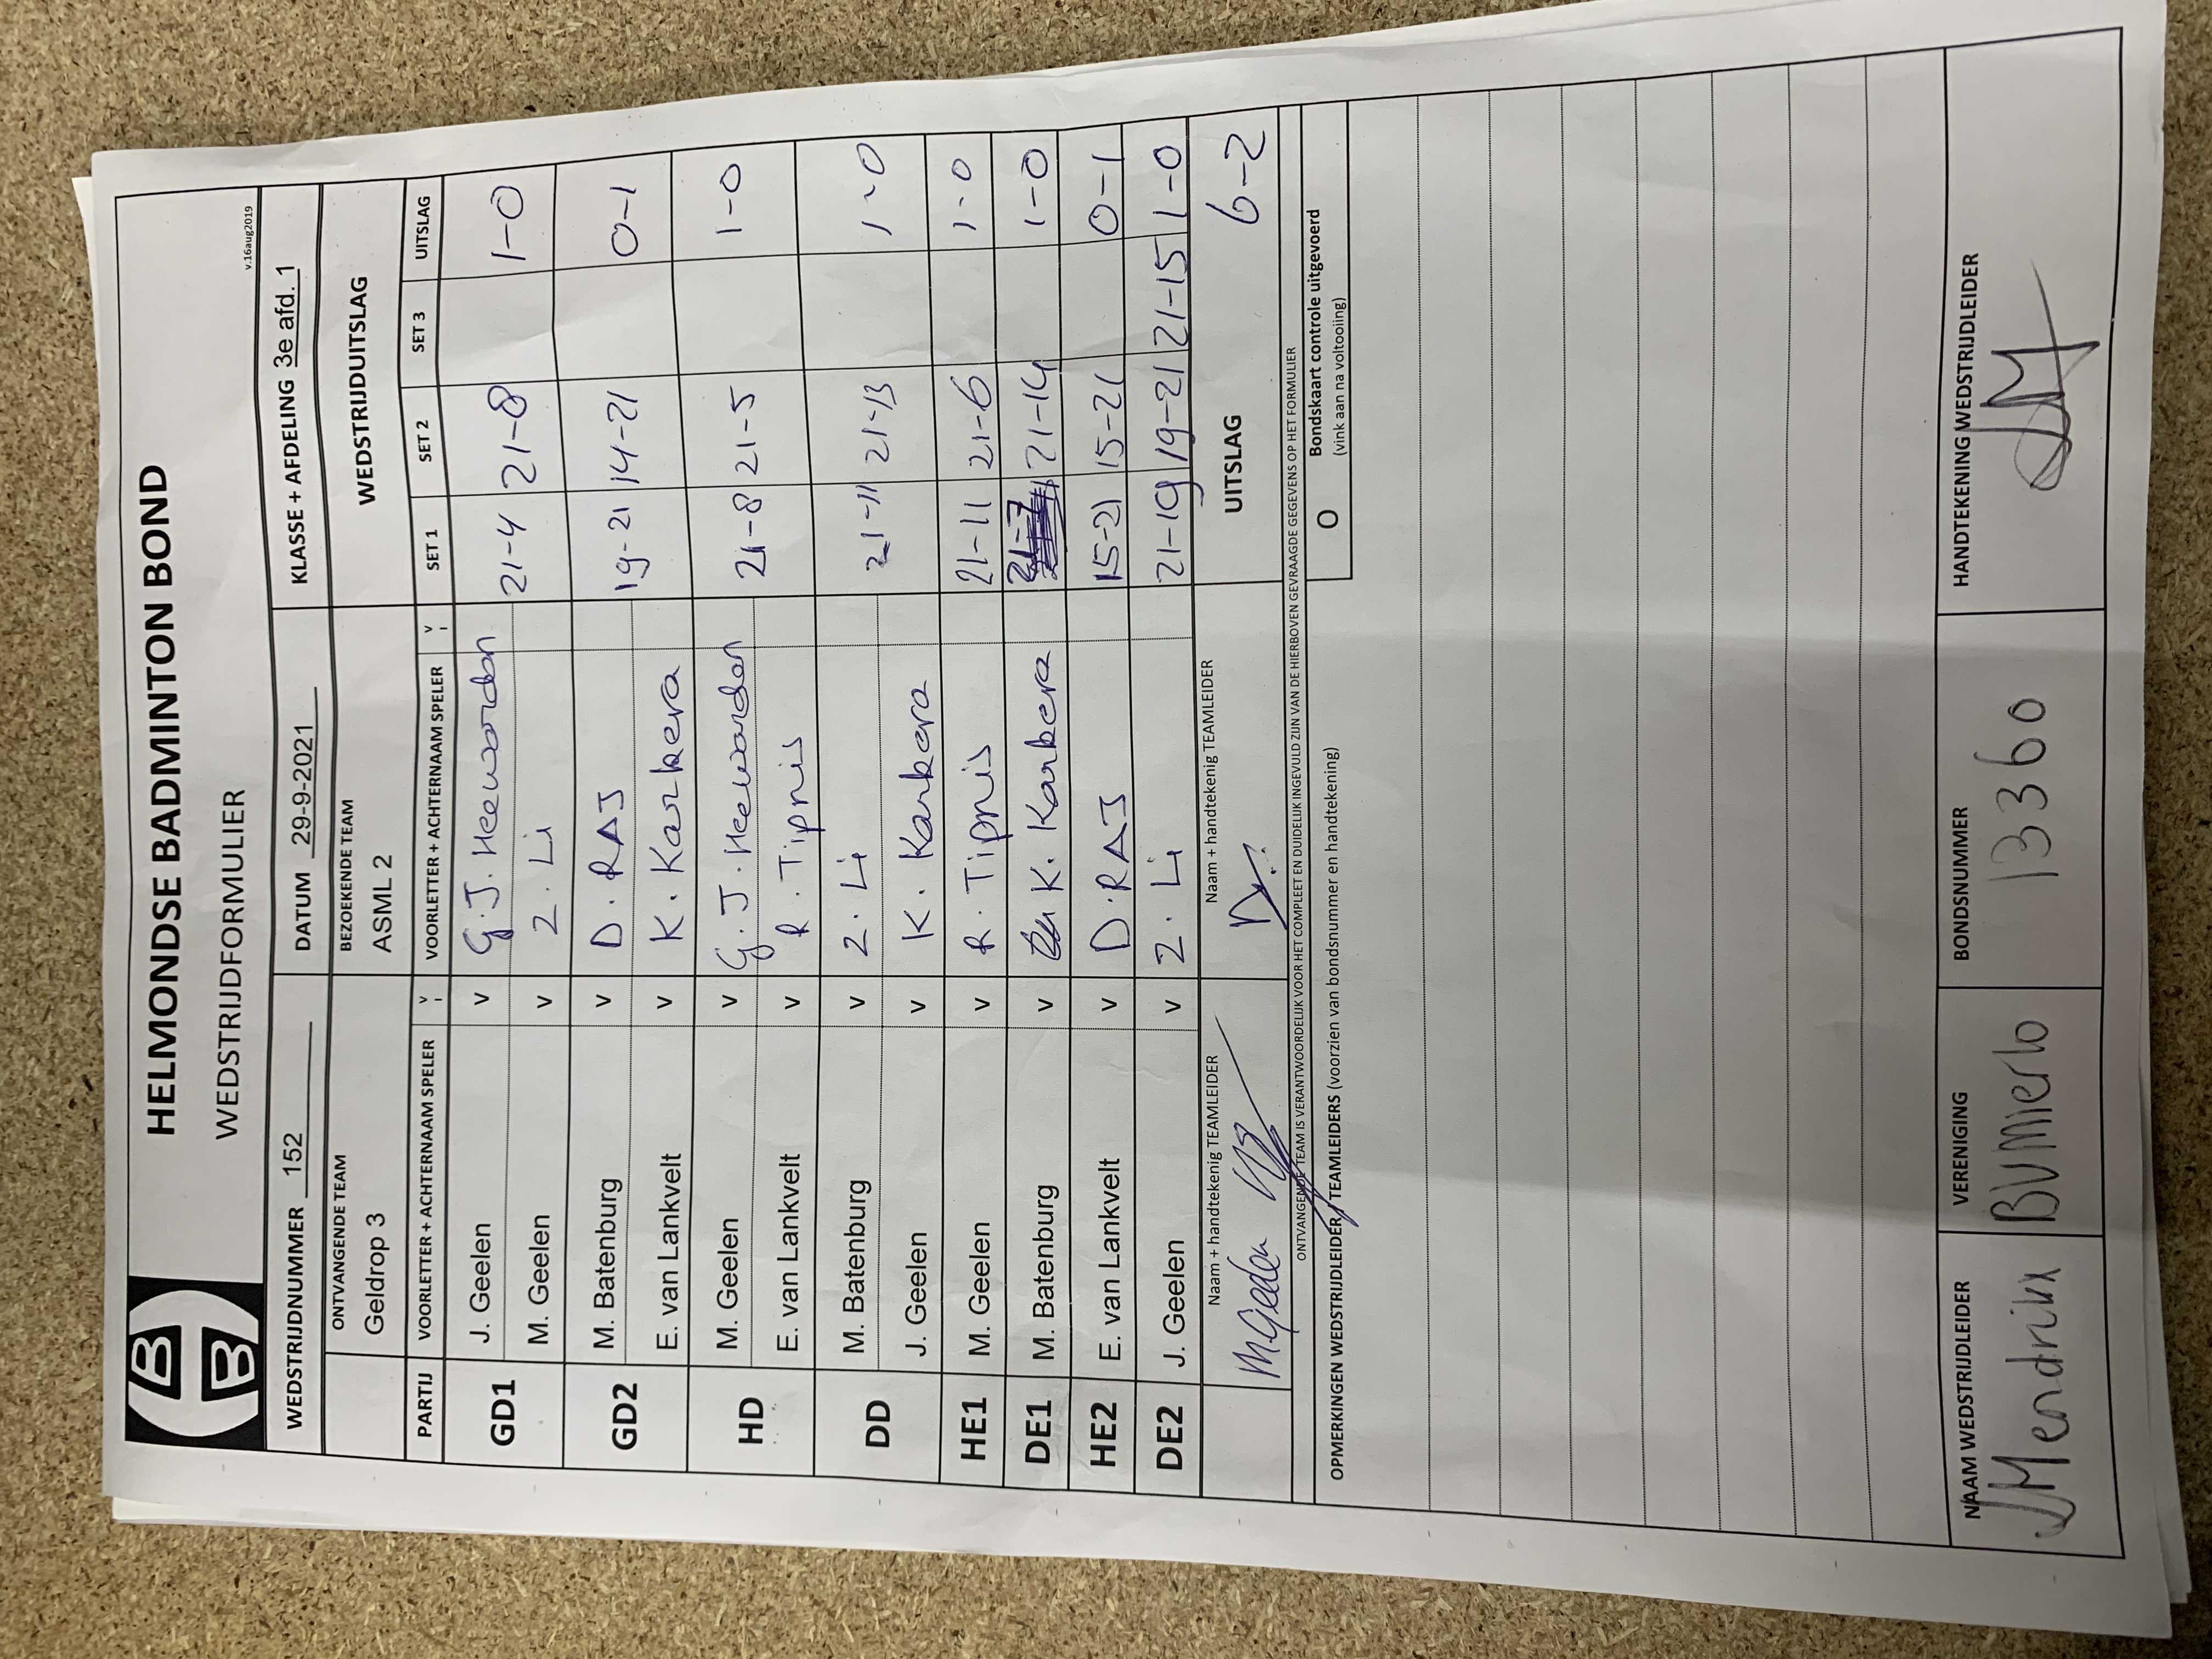 HELMONDSE BADMINTON BOND
WEDSTRIJDFORMULIER
v.16aug2019
WEDSTRIJDNUMMER 152 DATUM 29-9-2021 KLASSE + AFDELING 3e afd. 1
ONTVANGENDE TEAM BEZOEKENDE TEAM WEDSTRIJDUITSLAG
Geldrop 3 ASML 2
PARTIJ VOORLETTER + ACHTERNAAM SPELER V VOORLETTER + ACHTERNAAM SPELER V SET 1 SET 2 SET 3 UITSLAG
GD1 J. Geelen v G.J. Heewaarden 21-4 21-8 1-0
M. Geelen v Z. Li
GD2 M. Batenburg v D. RAJ 19-21 14-21 0-1
E. van Lankvelt v K. Karkera
HD M. Geelen v G.J. Heewaarden 21-8 21-5 1-0
E. van Lankvelt v R. Tipnis
DD M. Batenburg v Z. Li 21-11 21-13 1-0
J. Geelen v K. Karkera
HE1 M. Geelen v R. Tipnis 21-11 21-6 1-0
DE1 M. Batenburg v K. Karkera 21-7 21-14 1-0
HE2 E. van Lankvelt v D. RAJ 15-21 15-21 0-1
DE2 J. Geelen v Z. Li 21-19 19-21 21-15 1-0
Naam + handtekenig TEAMLEIDER Naam + handtekenig TEAMLEIDER UITSLAG 6-2
M Geelen
ONTVANGENDE TEAM IS VERANTWOORDELIJK VOOR HET COMPLEET EN DUIDELIJK INGEVULD ZIJN VAN DE HIERBOVEN GEVRAAGDE GEGEVENS OP HET FORMULIER
OPMERKINGEN WEDSTRIJDLEIDER / TEAMLEIDERS (voorzien van bondsnummer en handtekening)
O Bondskaart controle uitgevoerd
(vink aan na voltooiing)
NAAM WEDSTRIJDLEIDER VERENIGING BONDSNUMMER HANDTEKENING WEDSTRIJDLEIDER
BV Mierlo 13360